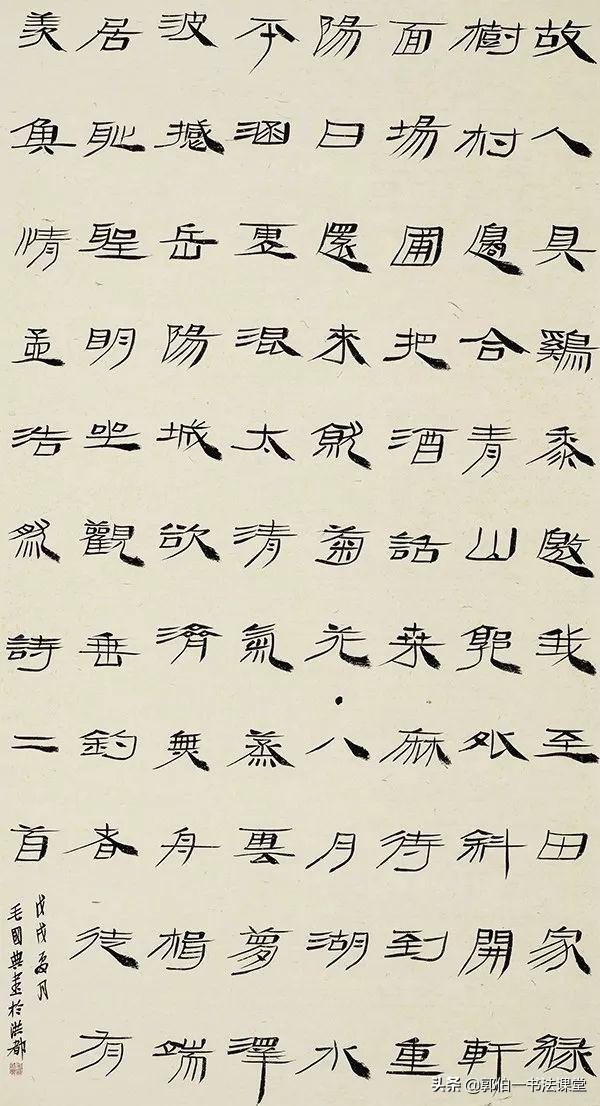 故人具鷄黍邀我至田家緑
樹村邊合青山郭外斜開軒
面場圃把酒話桑麻待到重
陽日還來就菊花八月湖水
平涵虛混太清氣蒸雲夢澤
波撼岳陽城欲濟無舟楫端
居恥聖明坐觀垂釣者徒有
羨魚情孟浩然詩二首
戊戌夏月
毛國典書於洪都
头条 @郭伯一书法课堂